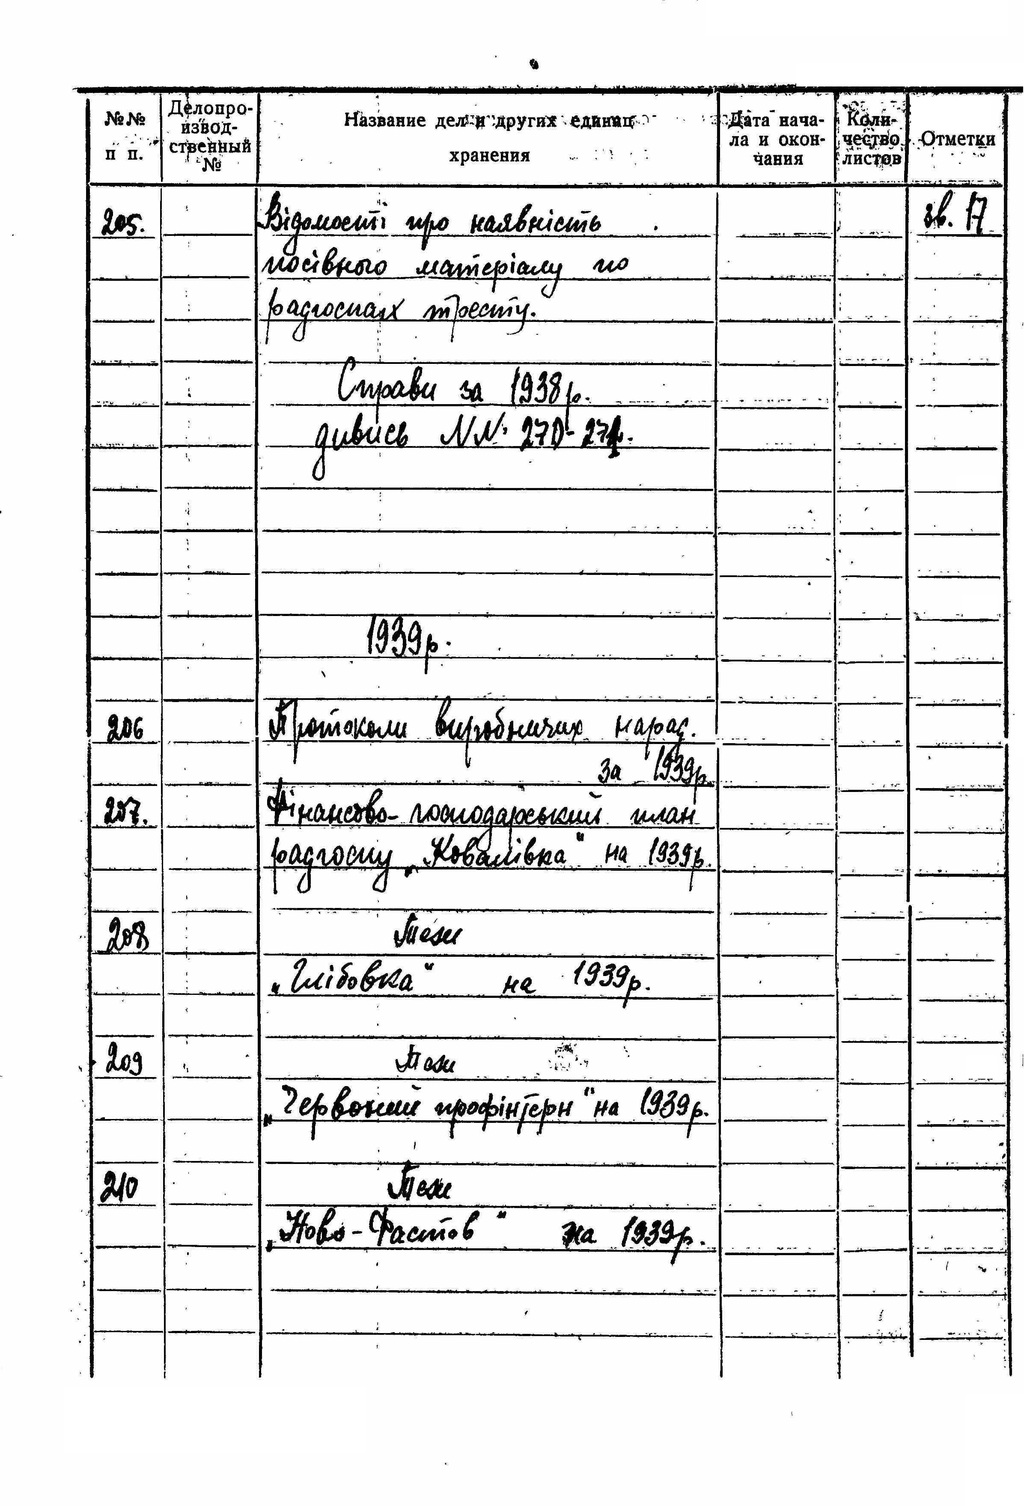 №№ п п.
Делопроизводственный №
Название дел и других единиц хранения
Дата начала и окончания
Количество листов
Отметки
205. Відомості про наявність зв. 17
посівного матеріалу по
радгоспах тресту.
Справи за 1938р.
дивись NN: 270-271.
1939р.
206 Протоколи виробничих нарад.
за 1939р.
207. Фінансово-господарський план
радгоспу „Ковалівка" на 1939р.
208 Тези
„Глібовка" на 1939р.
209 Тези
„Червоний профінтерн" на 1939р.
210 Тези
„Ново-Фастов" на 1939р.